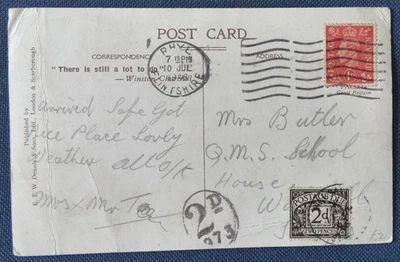 POST CARD
CORRESPONDENCE
"There is still a lot to do"
— Winston Churchill
ADDRESS
RHYL
7 15 PM
10 JUL
FLINTSHIRE
Published by
E. T. W. Dennis & Sons, Ltd., London & Scarborough
Arrived Safe Got
Nice Place Lovely
Weather All O/K
Mrs & Mr
Mrs Butler
Q.M.S. School
House
2D
373
POSTAGE DUE
2d
TWO PENCE